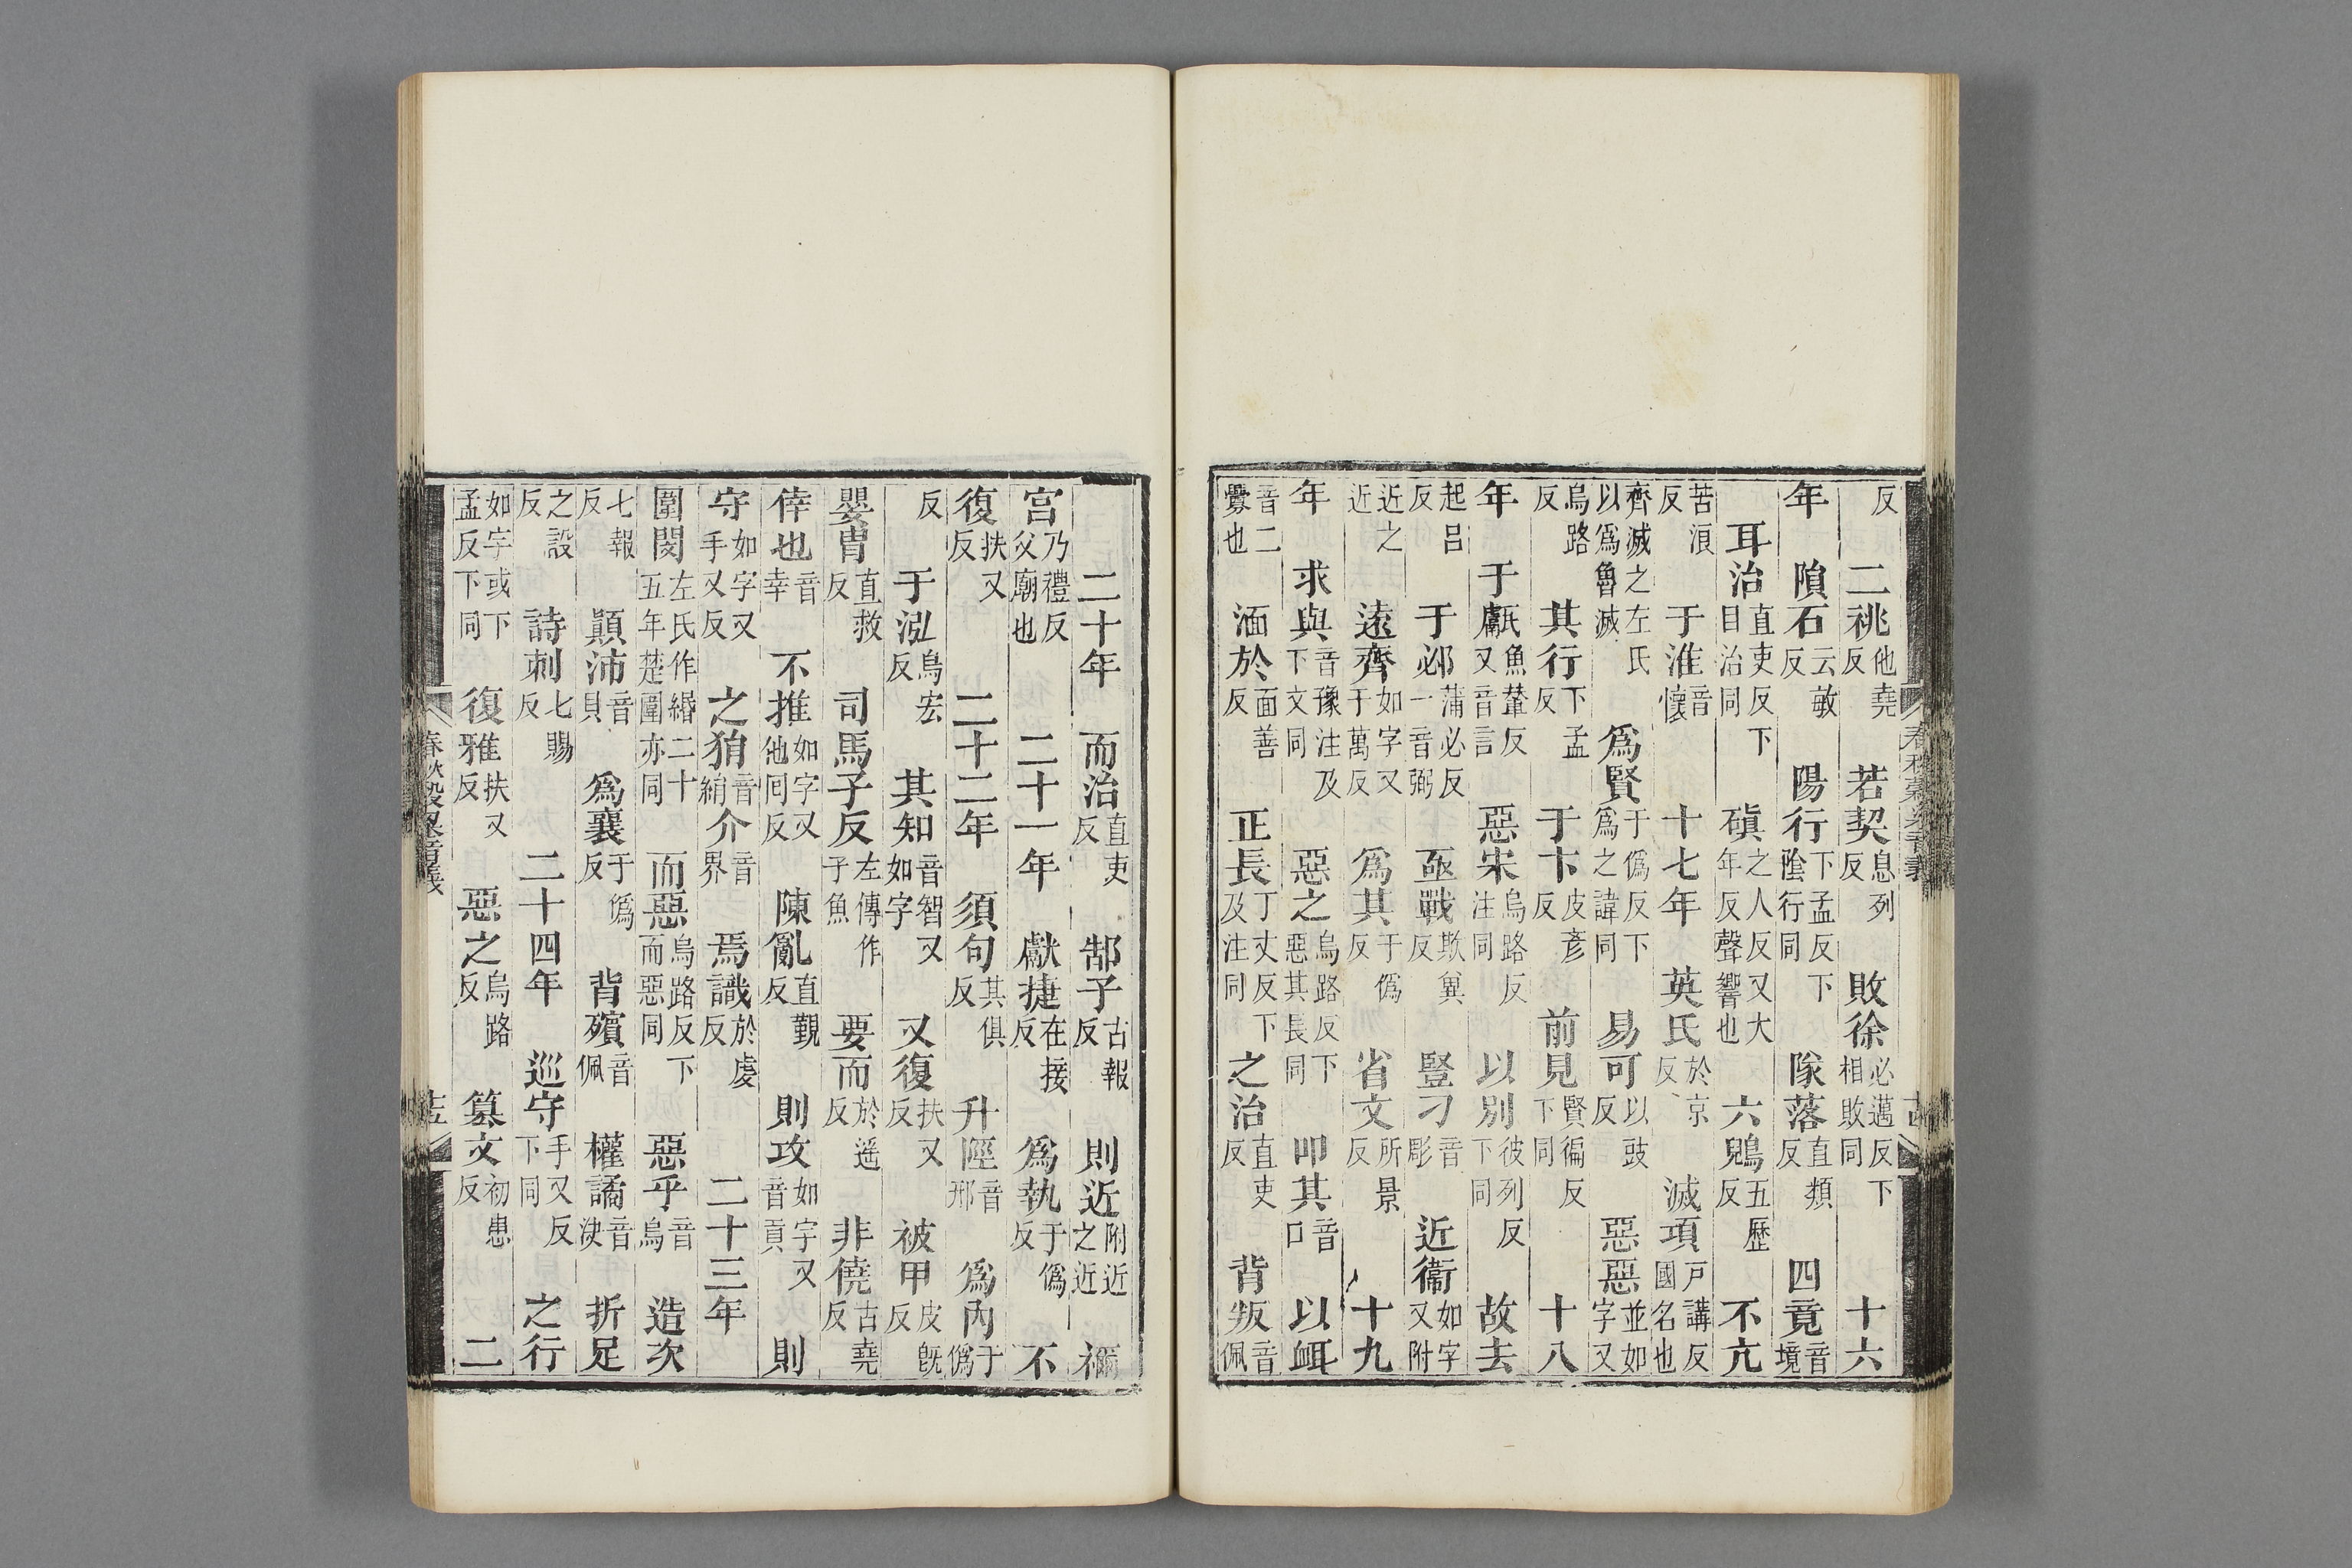 反　二祧他堯反　若契息列反　敗徐必邁反下相敗同　十六
年　隕石云敏反　陽行下孟反下陰行同　隊落直類反　四竟音境
耳治直吏反下目治同　磌之人反又大年反聲響也　六鶂五歷反　不亢
苦浪反　于淮音懷　十七年　英氏於京反　滅項戶講反國名也
齊滅之左氏以爲魯滅　爲賢于僞反下爲之諱同　易可以豉反　惡惡並如字又
烏路反　其行下孟反　于卞皮彥反　前見賢徧反下同　十八
年　于甗魚輦反又音言　惡宋烏路反注同　以別彼列反下同　故去
起呂反　于邲蒲必反一音弼　亟戰欺冀反　豎刁音彫　近衞如字又附
近之近　遠齊如字又于萬反　爲其于僞反　省文所景反　十九
年　求與音豫注及下文同　惡之烏路反下惡其長同　叩其音口　以衈
音二釁也　湎於面善反　正長丁丈反下及注同　之治直吏反　背叛音佩
二十年　而治直吏反　郜子古報反　則近附近之近　禰
宮乃禮反父廟也　二十一年　獻捷在接反　爲執于僞反　不
復扶又反　二十二年　須句其俱反　升陘音邢　爲內于僞
反　于泓烏宏反　其知音智又如字　又復扶又反　被甲皮旣反
嬰冑直救反　司馬子反左傳作子魚　要而於遥反　非僥古堯反
倖也音幸　不推如字又他回反　陳亂直覲反　則攻如字又音貢　則
守如字又手又反　之狷音絹　介音界　焉識於虔反　二十三年
圍閔左氏作緡二十五年楚圍亦同　而惡烏路反下而惡同　惡乎音烏　造次
七報反　顚沛音貝　爲襄于僞反　背殯音佩　權譎音決　折足
之設反　詩刺七賜反　二十四年　巡守手又反下同　之行
如字或下孟反下同　復雅扶又反　惡之烏路反　篡文初患反　二
春秋穀梁音義